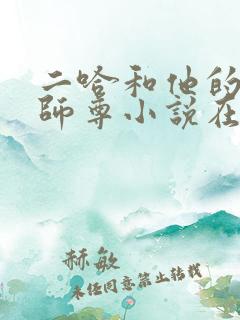 二哈和他的
師尊小說在
赫敏
未经同意禁止转载